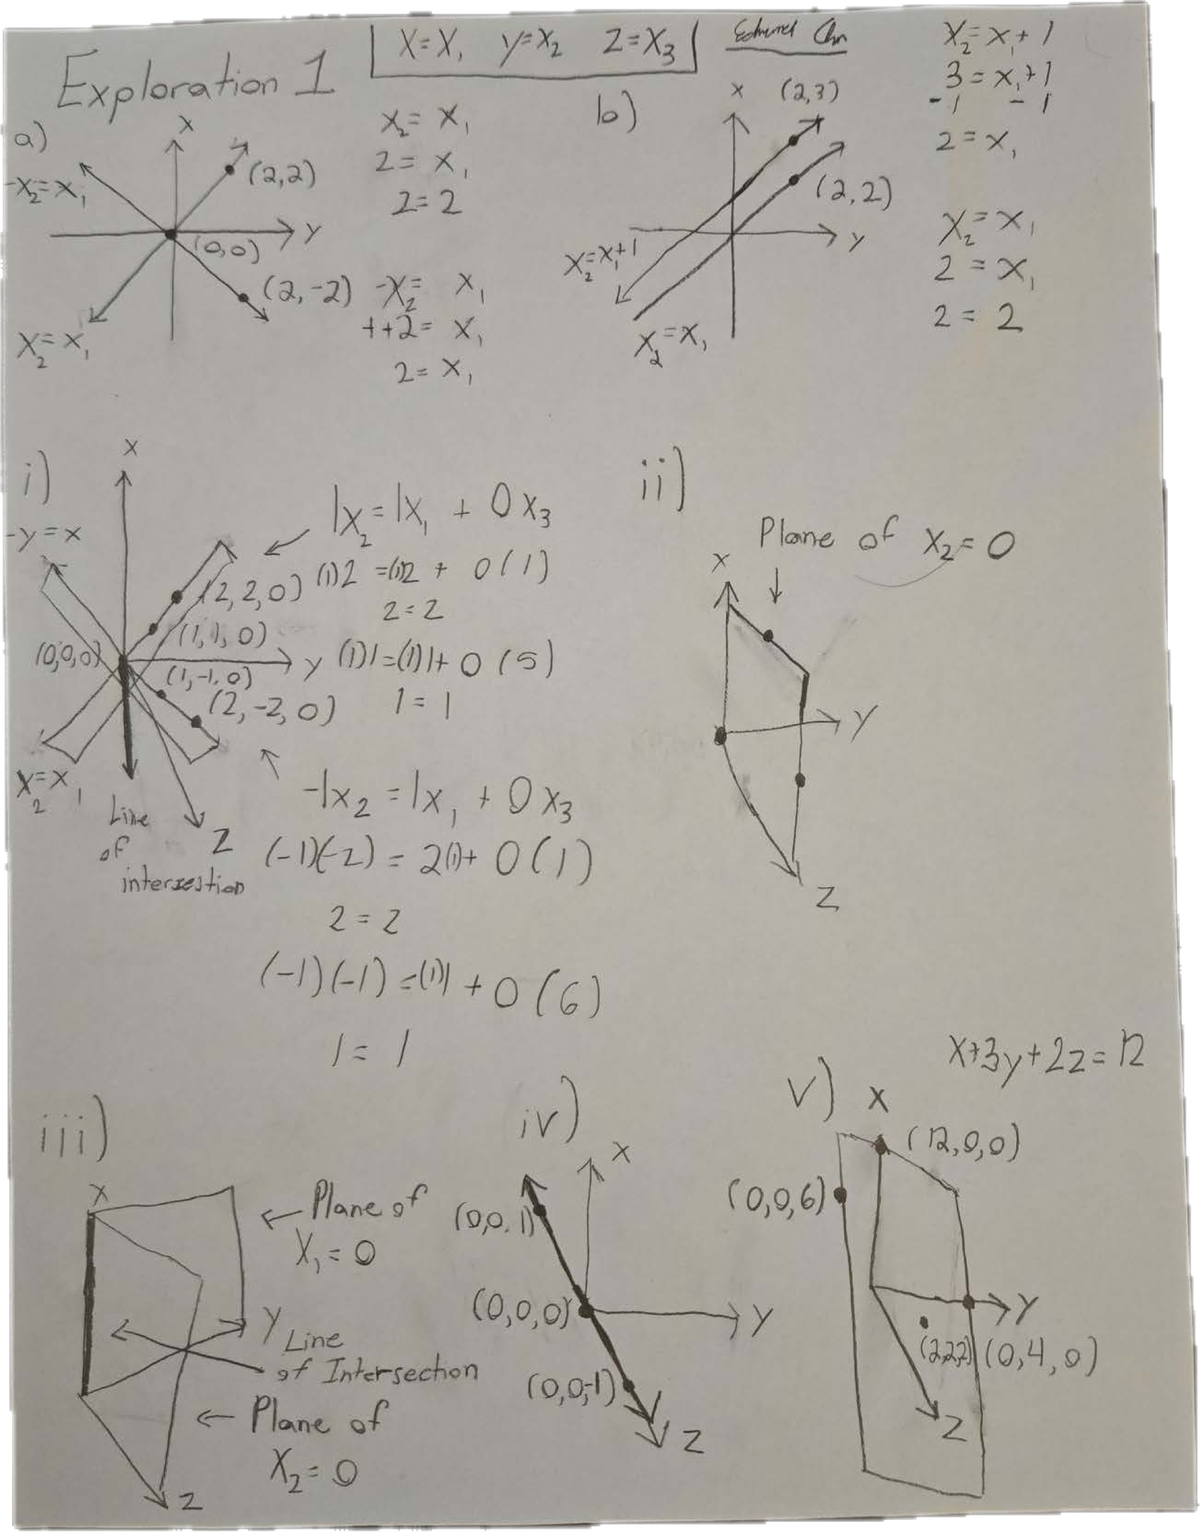 Exploration 1
X=X₁ y=X₂ Z=X₃
a)
X
-X₂=X₁
(2,2)
Y
(0,0)
(2,-2)
X₂=X₁
X₂=X₁
2=X₁
2=2
-X₂=X₁
++2=X₁
2=X₁
b)
X
(2,3)
(2,2)
Y
X₂=X₁+1
X₂=X₁
X₂=X₁+1
3=X₁+1
-1 -1
2=X₁
X₂=X₁
2=X₁
2=2
i)
X
-y=x
(2,2,0)
(1,1,0)
(0,0,0)
Y
(1,-1,0)
(2,-2,0)
X₂=X₁
Line
of
intersection
Z
1X₂=1X₁+0X₃
(1)2=(1)2+0(1)
2=2
(1)1=(1)1+0(5)
1=1
-1X₂=1X₁+0X₃
(-1)(-2)=2(1)+0(1)
2=2
(-1)(-1)=(1)1+0(6)
1=1
ii)
Plane of X₂=0
X
Y
Z
iii)
X
Plane of
X₁=0
Y
Line
of Intersection
Plane of
X₂=0
Z
iv)
X
(0,0,1)
(0,0,0)
Y
(0,0,-1)
Z
v)
X+3y+2z=12
X
(12,0,0)
(0,0,6)
Y
(2,2,2)
(0,4,0)
Z